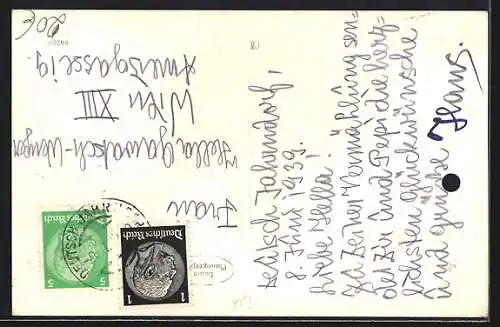 Deutsch Jahrndorf,
8. Juni 1939.
Liebe Hella!
Zu Deiner Vermählung sen-
det Dir und Pepi die herz-
lichsten Glückwünsche
und Grüße Hans.
Frau
Hella
Wien XIII
20€
Deutsches Reich
5
5
Deutsches Reich
1
1